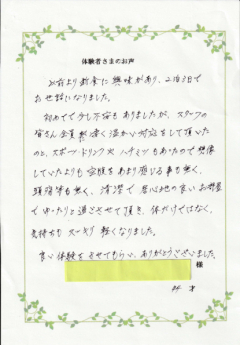 体験者さまのお声
以前より断食に興味があり、2泊3日で
お世話になりました。
初めてで少し不安もありましたが、スタッフの
皆さん全員 終始温かい対応をして頂いた
のと、スポーツドリンクや ハチミツもあったので想像
していたよりも空腹をあまり感じる事も無く、
頭痛等も無く、清潔で居心地の良いお部屋
でゆったりと過ごさせて頂き、体だけではなく、
気持ちも スッキリ 軽くなりました。
良い体験をさせてもらい、ありがとうございました。
様
才